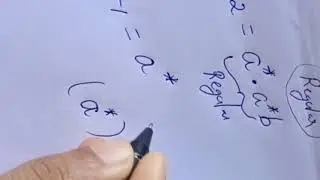 Regular
2 = a* . a*b
Regular
-1 = a*
(a*)